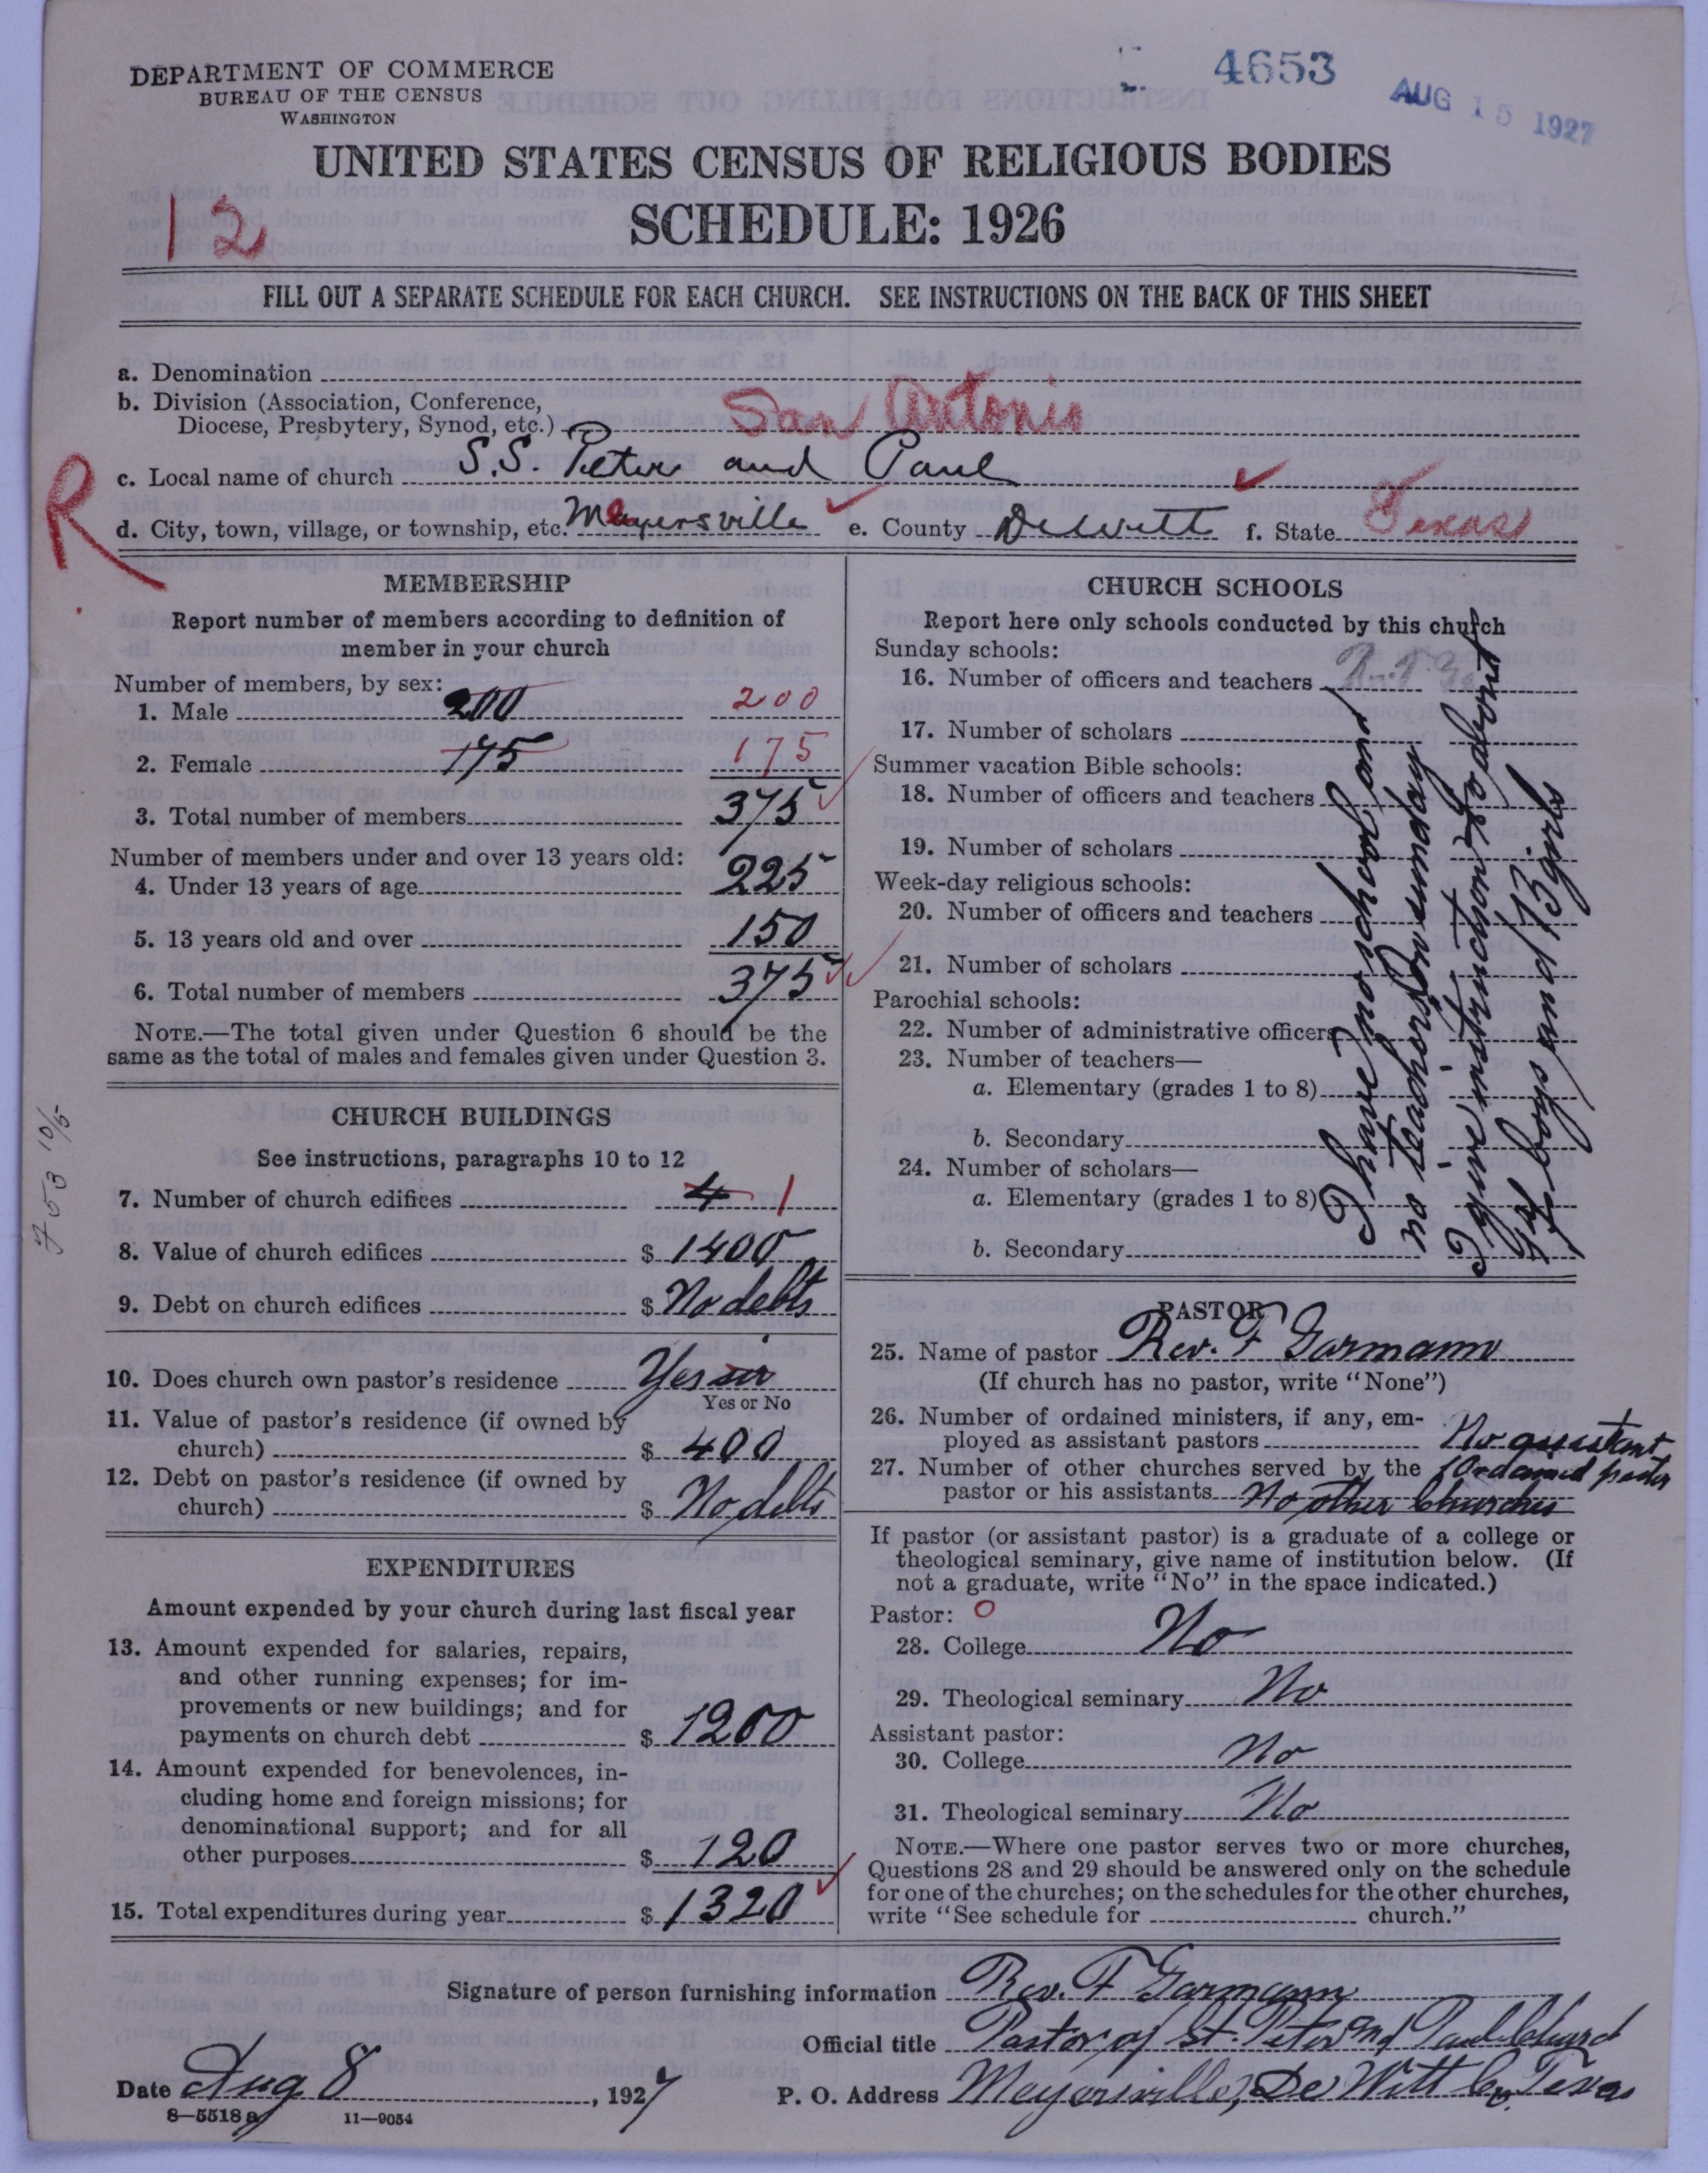 DEPARTMENT OF COMMERCE
BUREAU OF THE CENSUS
WASHINGTON
4653
AUG 15 1927
UNITED STATES CENSUS OF RELIGIOUS BODIES
SCHEDULE: 1926
12
FILL OUT A SEPARATE SCHEDULE FOR EACH CHURCH. SEE INSTRUCTIONS ON THE BACK OF THIS SHEET
a. Denomination
b. Division (Association, Conference,
Diocese, Presbytery, Synod, etc.) San Antonio
R
c. Local name of church S.S. Peter and Paul
d. City, town, village, or township, etc. Meyersville e. County Dewitt f. State Texas
MEMBERSHIP
Report number of members according to definition of
member in your church
Number of members, by sex:
1. Male 200 200
2. Female 175 175
3. Total number of members 375
Number of members under and over 13 years old:
4. Under 13 years of age 225
5. 13 years old and over 150
6. Total number of members 375
NOTE.—The total given under Question 6 should be the
same as the total of males and females given under Question 3.
CHURCH BUILDINGS
See instructions, paragraphs 10 to 12
7. Number of church edifices 4 1
8. Value of church edifices $ 1400
9. Debt on church edifices $ No debts
10. Does church own pastor's residence Yes sir
Yes or No
11. Value of pastor's residence (if owned by
church) $ 400
12. Debt on pastor's residence (if owned by
church) $ No debts
EXPENDITURES
Amount expended by your church during last fiscal year
13. Amount expended for salaries, repairs,
and other running expenses; for im-
provements or new buildings; and for
payments on church debt $ 1200
14. Amount expended for benevolences, in-
cluding home and foreign missions; for
denominational support; and for all
other purposes $ 120
15. Total expenditures during year $ 1320
CHURCH SCHOOLS
Report here only schools conducted by this church
Sunday schools:
16. Number of officers and teachers
17. Number of scholars
Summer vacation Bible schools:
18. Number of officers and teachers
19. Number of scholars
Week-day religious schools:
20. Number of officers and teachers
21. Number of scholars
Parochial schools:
22. Number of administrative officers
23. Number of teachers—
a. Elementary (grades 1 to 8)
b. Secondary
24. Number of scholars—
a. Elementary (grades 1 to 8)
b. Secondary
I give instruction to about
24 boys and 13 girls
PASTOR
25. Name of pastor Rev. F Garmann
(If church has no pastor, write "None")
26. Number of ordained ministers, if any, em-
ployed as assistant pastors No assistant
Ordained pastor
27. Number of other churches served by the
pastor or his assistants No other Churches
If pastor (or assistant pastor) is a graduate of a college or
theological seminary, give name of institution below. (If
not a graduate, write "No" in the space indicated.)
Pastor: 0
28. College No
29. Theological seminary No
Assistant pastor:
30. College No
31. Theological seminary No
NOTE.—Where one pastor serves two or more churches,
Questions 28 and 29 should be answered only on the schedule
for one of the churches; on the schedules for the other churches,
write "See schedule for church."
Signature of person furnishing information Rev. F Garmann
Official title Pastor of St. Peter and Paul Church
Date Aug 8, 1927 P. O. Address Meyersville, De Witt Co. Texas
8—5518 a 11—9054